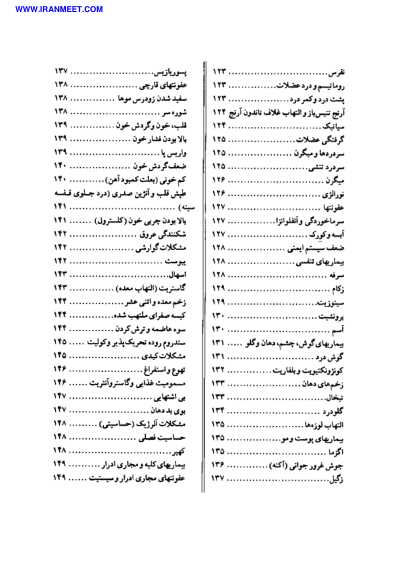 WWW.IRANMEET.COM
نقرس ............................ ۱۲۳
روماتیسم و درد عضلات ............... ۱۲۳
پشت درد و کمر درد ................... ۱۲۳
آرنج تنیس‌باز و التهاب غلاف تاندون آرنج ۱۲۴
سیاتیک .............................. ۱۲۴
گرفتگی عضلات ....................... ۱۲۵
سردردها و میگرن ..................... ۱۲۵
سردرد تنشی .......................... ۱۲۵
میگرن ............................... ۱۲۶
نورالژی .............................. ۱۲۶
عفونتها .............................. ۱۲۷
سرماخوردگی و آنفلوانزا ............... ۱۲۷
آبسه و کورک ......................... ۱۲۷
ضعف سیستم ایمنی .................... ۱۲۸
بیماریهای تنفسی ...................... ۱۲۸
سرفه ................................ ۱۲۸
زکام ................................. ۱۲۹
سینوزیت ............................. ۱۲۹
برونشیت ............................. ۱۳۰
آسم ................................. ۱۳۰
بیماریهای گوش، چشم، دهان و گلو ..... ۱۳۱
گوش درد ............................. ۱۳۱
کونژونکتیویت و بلفاریت ............... ۱۳۲
زخم‌های دهان ........................ ۱۳۳
تبخال ............................... ۱۳۳
گلودرد ............................... ۱۳۴
التهاب لوزه‌ها ......................... ۱۳۵
بیماریهای پوست و مو .................. ۱۳۵
اگزما ................................ ۱۳۵
جوش غرور جوانی (آکنه) .............. ۱۳۶
زگیل ................................ ۱۳۷
پسوریازیس ........................... ۱۳۷
عفونتهای قارچی ...................... ۱۳۸
سفید شدن زودرس موها ............... ۱۳۸
شوره سر ............................. ۱۳۸
قلب، خون و گردش خون ............... ۱۳۹
بالا بودن فشار خون .................... ۱۳۹
واریس پا ............................. ۱۳۹
ضعف گردش خون ..................... ۱۴۰
کم خونی (بعلت کمبود آهن) ........... ۱۴۰
طپش قلب و آنژین صدری (درد جلوی قفسه
سینه) ............................... ۱۴۱
بالا بودن چربی خون (کلسترول) ....... ۱۴۱
شکنندگی عروق ....................... ۱۴۲
مشکلات گوارشی ...................... ۱۴۲
یبوست ............................... ۱۴۲
اسهال ................................ ۱۴۳
گاستریت (التهاب معده) ............... ۱۴۳
زخم معده و اثنی عشر .................. ۱۴۴
کیسه صفرای ملتهب شده .............. ۱۴۴
سوء هاضمه و ترش کردن .............. ۱۴۴
سندروم روده تحریک‌پذیر و کولیت ..... ۱۴۵
مشکلات کبدی ....................... ۱۴۵
تهوع و استفراغ ....................... ۱۴۶
مسمومیت غذایی و گاستروآنتریت ...... ۱۴۶
بی اشتهایی ........................... ۱۴۷
بوی بد دهان .......................... ۱۴۷
مشکلات آلرژیک (حساسیتی) .......... ۱۴۸
حساسیت فصلی ....................... ۱۴۸
کهیر ................................. ۱۴۸
بیماریهای کلیه و مجاری ادرار .......... ۱۴۹
عفونتهای مجاری ادرار و سیستیت ...... ۱۴۹